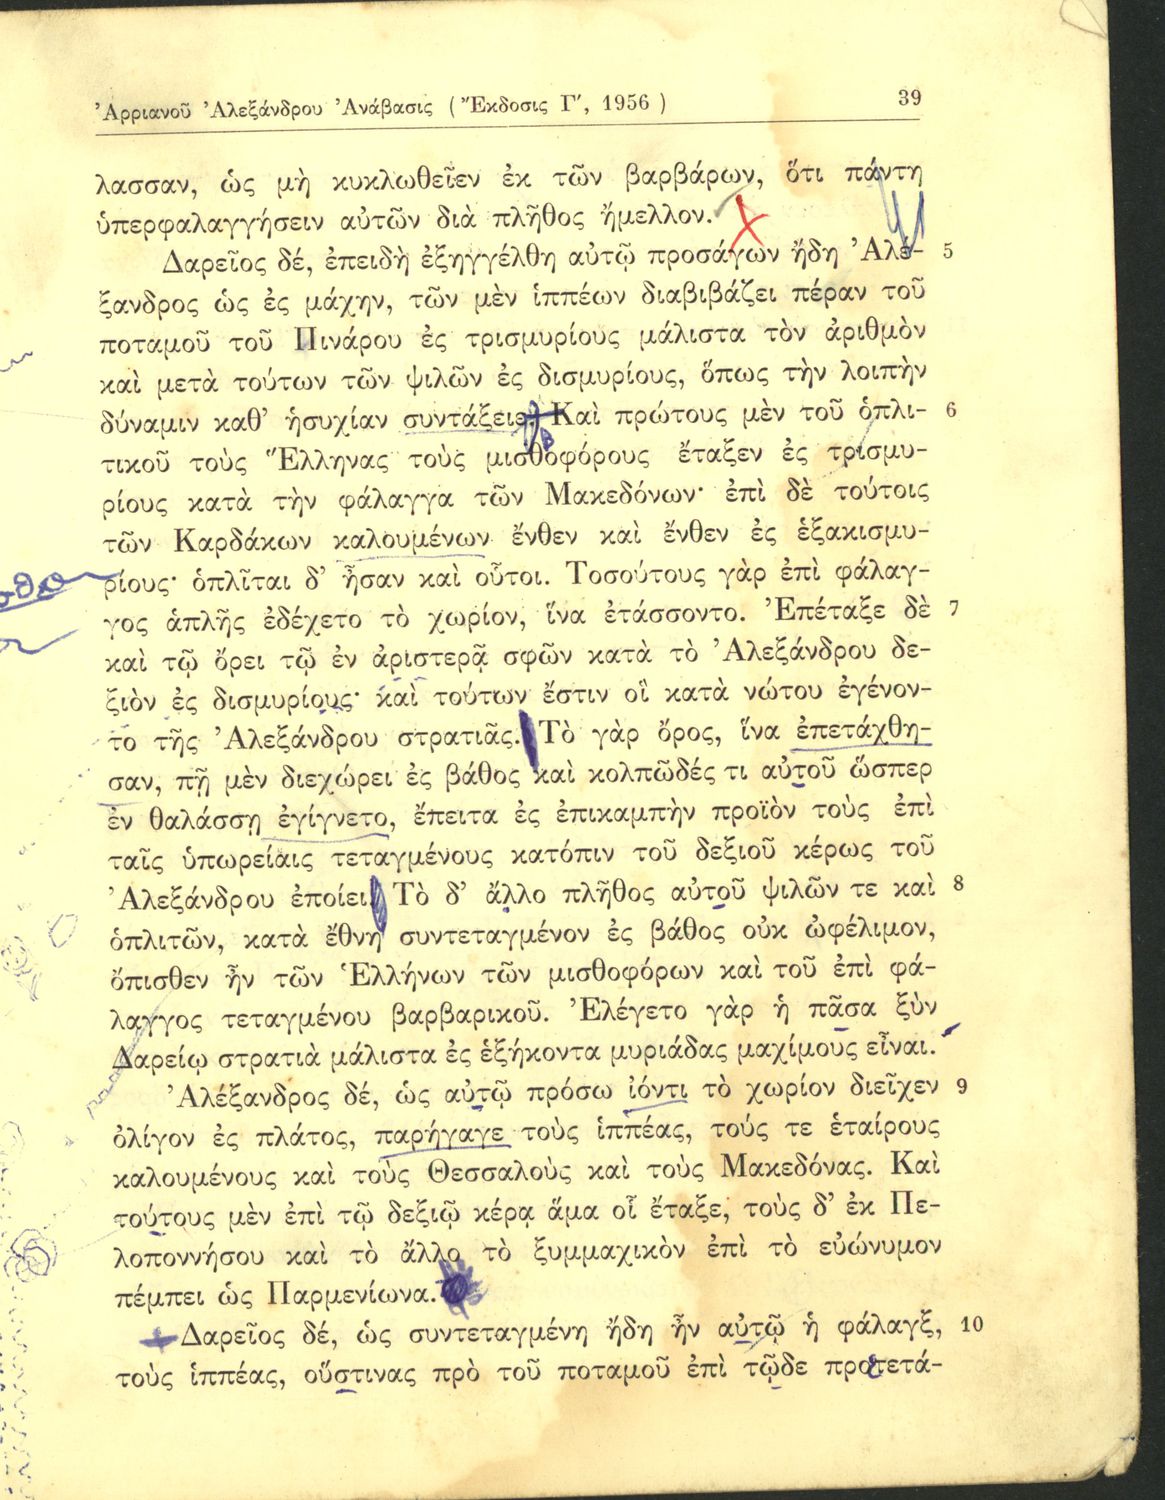 Ἀρριανοῦ Ἀλεξάνδρου Ἀνάβασις (Ἔκδοσις Γ′, 1956) 39
λασσαν, ὡς μὴ κυκλωθεῖεν ἐκ τῶν βαρβάρων, ὅτι πάντη
ὑπερφαλαγγήσειν αὐτῶν διὰ πλῆθος ἤμελλον.
Δαρεῖος δέ, ἐπειδὴ ἐξηγγέλθη αὐτῷ προσάγων ἤδη Ἀλέ- 5
ξανδρος ὡς ἐς μάχην, τῶν μὲν ἱππέων διαβιβάζει πέραν τοῦ
ποταμοῦ τοῦ Πινάρου ἐς τρισμυρίους μάλιστα τὸν ἀριθμὸν
καὶ μετὰ τούτων τῶν ψιλῶν ἐς δισμυρίους, ὅπως τὴν λοιπὴν
δύναμιν καθ’ ἡσυχίαν συντάξειε. Καὶ πρώτους μὲν τοῦ ὁπλι- 6
τικοῦ τοὺς Ἕλληνας τοὺς μισθοφόρους ἔταξεν ἐς τρισμυ-
ρίους κατὰ τὴν φάλαγγα τῶν Μακεδόνων· ἐπὶ δὲ τούτοις
τῶν Καρδάκων καλουμένων ἔνθεν καὶ ἔνθεν ἐς ἑξακισμυ-
ρίους· ὁπλῖται δ’ ἦσαν καὶ οὗτοι. Τοσούτους γὰρ ἐπὶ φάλαγ-
γος ἁπλῆς ἐδέχετο τὸ χωρίον, ἵνα ἐτάσσοντο. Ἐπέταξε δὲ 7
καὶ τῷ ὄρει τῷ ἐν ἀριστερᾷ σφῶν κατὰ τὸ Ἀλεξάνδρου δε-
ξιὸν ἐς δισμυρίους· καὶ τούτων ἔστιν οἳ κατὰ νώτου ἐγένον-
το τῆς Ἀλεξάνδρου στρατιᾶς. Τὸ γὰρ ὄρος, ἵνα ἐπετάχθη-
σαν, πῇ μὲν διεχώρει ἐς βάθος καὶ κολπῶδές τι αὐτοῦ ὥσπερ
ἐν θαλάσσῃ ἐγίγνετο, ἔπειτα ἐς ἐπικαμπὴν προϊὸν τοὺς ἐπὶ
ταῖς ὑπωρείαις τεταγμένους κατόπιν τοῦ δεξιοῦ κέρως τοῦ
Ἀλεξάνδρου ἐποίει. Τὸ δ’ ἄλλο πλῆθος αὐτοῦ ψιλῶν τε καὶ 8
ὁπλιτῶν, κατὰ ἔθνη συντεταγμένον ἐς βάθος οὐκ ὠφέλιμον,
ὄπισθεν ἦν τῶν Ἑλλήνων τῶν μισθοφόρων καὶ τοῦ ἐπὶ φά-
λαγγος τεταγμένου βαρβαρικοῦ. Ἐλέγετο γὰρ ἡ πᾶσα ξὺν
Δαρείῳ στρατιὰ μάλιστα ἐς ἑξήκοντα μυριάδας μαχίμους εἶναι.
Ἀλέξανδρος δέ, ὡς αὐτῷ πρόσω ἰόντι τὸ χωρίον διεῖχεν 9
ὀλίγον ἐς πλάτος, παρήγαγε τοὺς ἱππέας, τούς τε ἑταίρους
καλουμένους καὶ τοὺς Θεσσαλοὺς καὶ τοὺς Μακεδόνας. Καὶ
τούτους μὲν ἐπὶ τῷ δεξιῷ κέρᾳ ἅμα οἷ ἔταξε, τοὺς δ’ ἐκ Πε-
λοποννήσου καὶ τὸ ἄλλο τὸ ξυμμαχικὸν ἐπὶ τὸ εὐώνυμον
πέμπει ὡς Παρμενίωνα.
Δαρεῖος δέ, ὡς συντεταγμένη ἤδη ἦν αὐτῷ ἡ φάλαγξ, 10
τοὺς ἱππέας, οὕστινας πρὸ τοῦ ποταμοῦ ἐπὶ τῷδε προτετά-